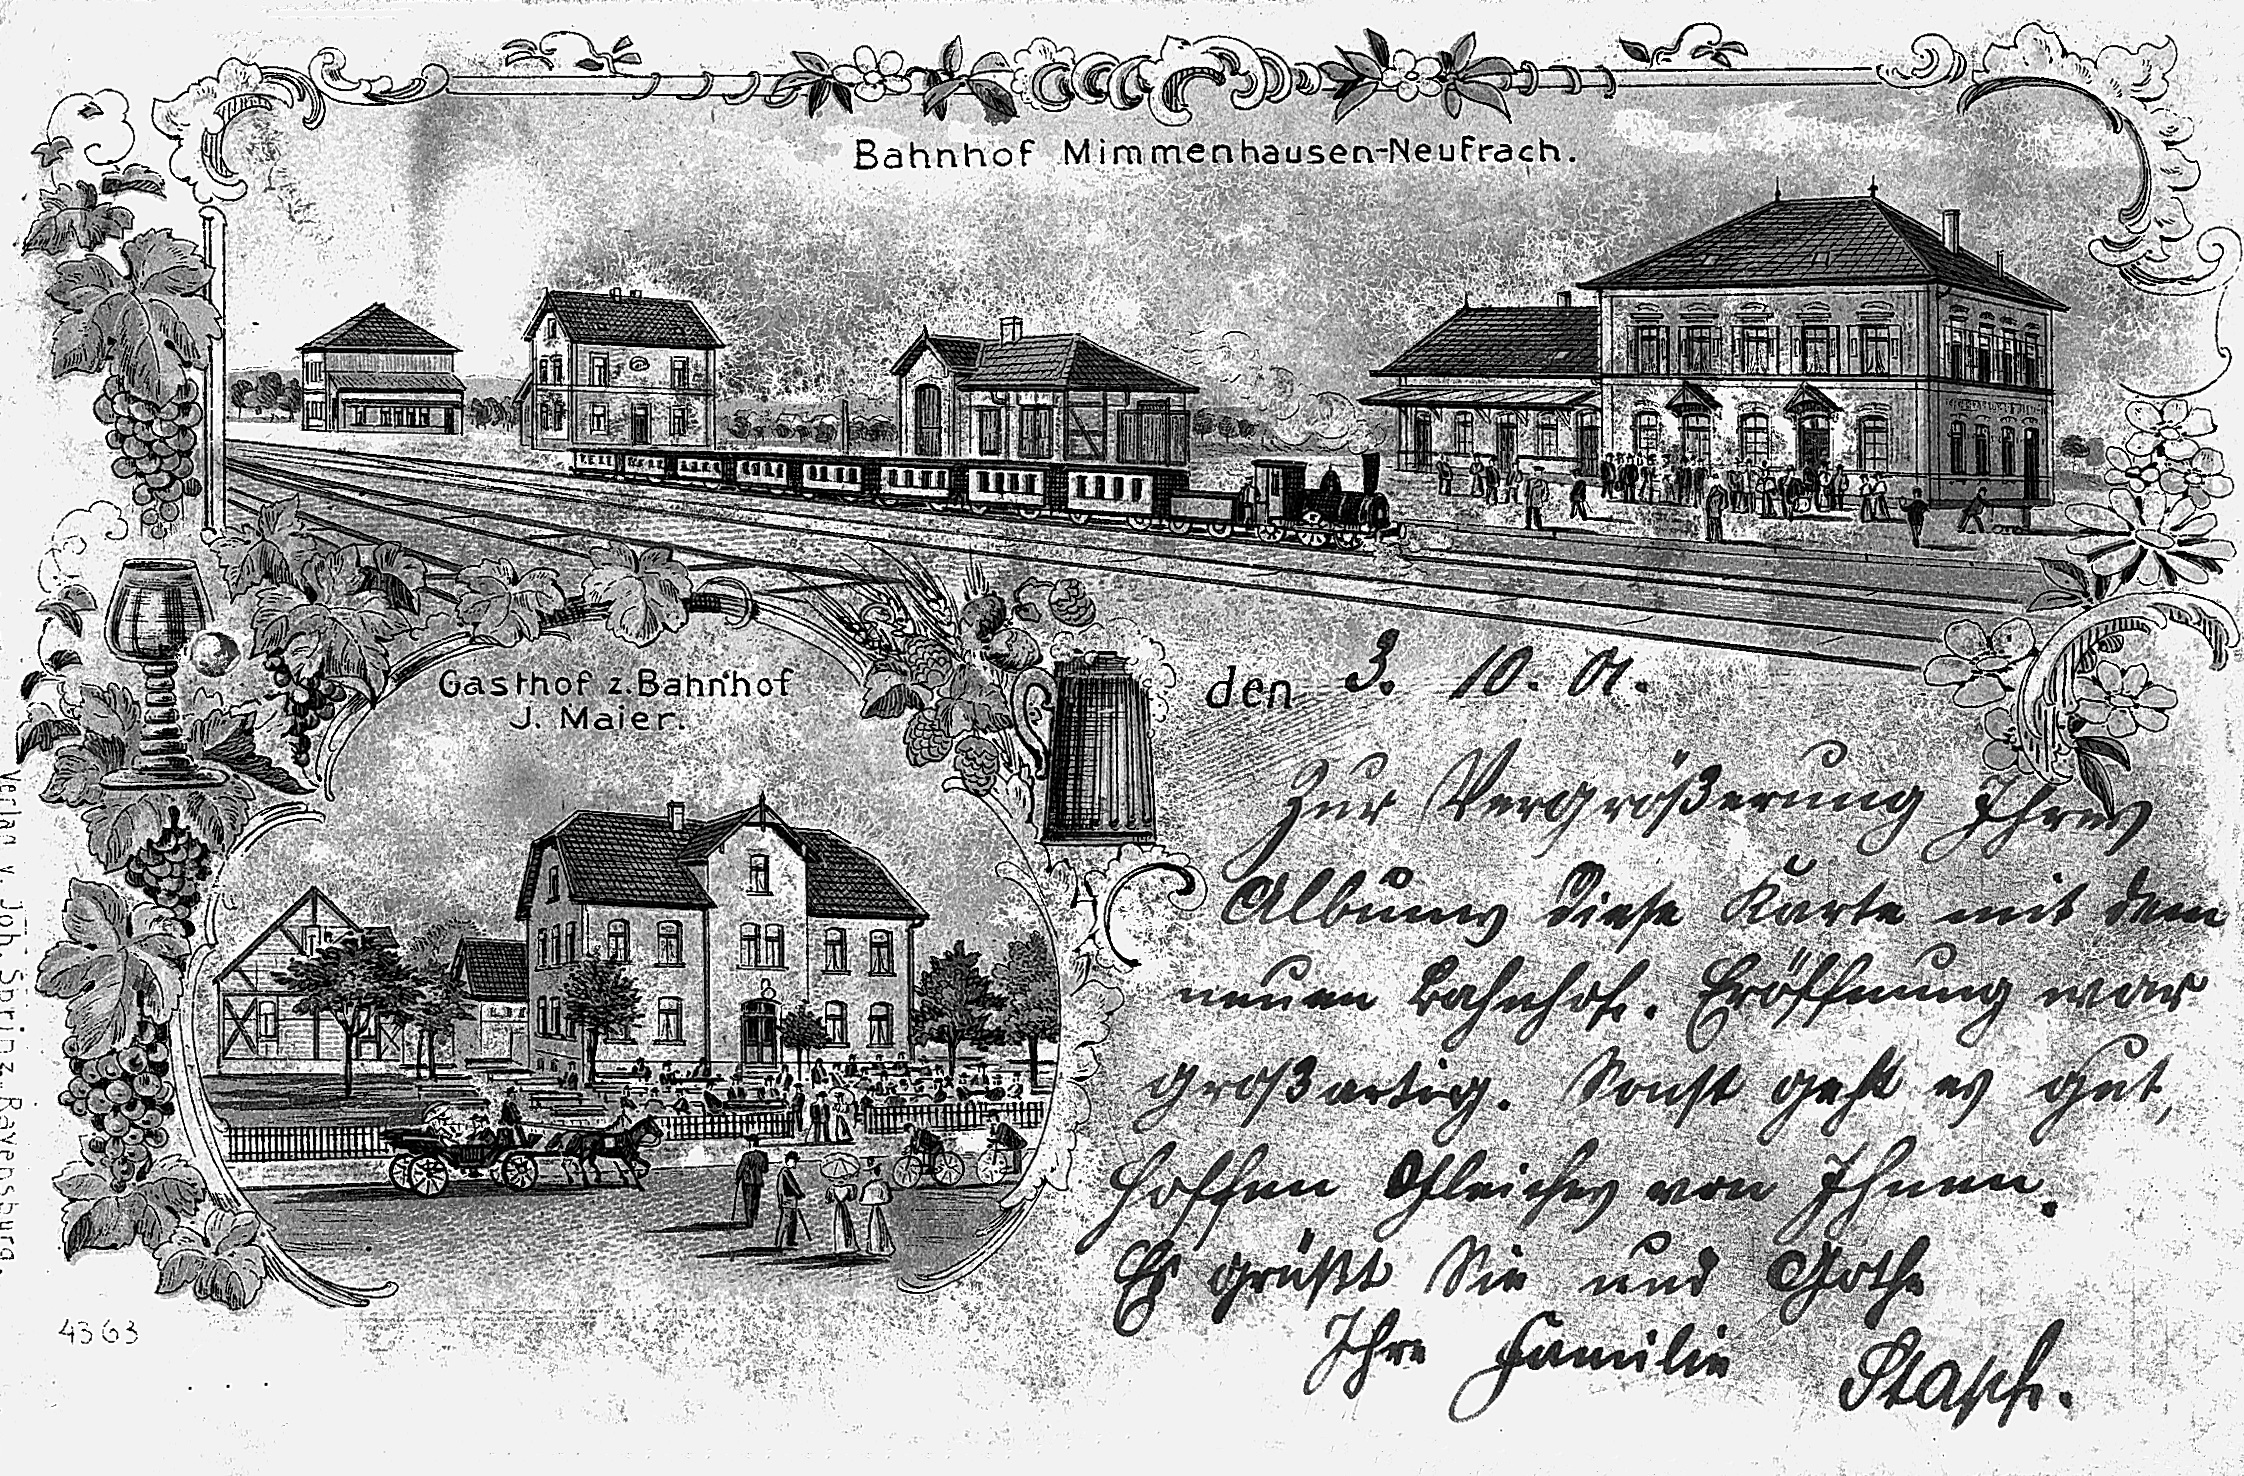 Bahnhof Mimmenhausen-Neufrach.
Gasthof z. Bahnhof
J. Maier.
den 3. 10. 01.
Zur Vergrößerung Ihres
Albums diese Karte mit dem
neuen Bahnhof. Eröffnung war
großartig. Sonst geht es gut,
hoffen Gleiches von Ihnen.
Es grüßt Sie und Gothe
Ihre Familie
Verlag v. Joh. Ravensburg.
4363